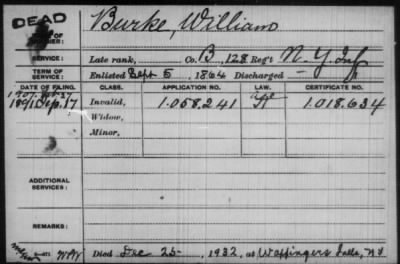 DEAD
Burke, William
NAME OF SOLDIER:
SERVICE: Late rank, Co. B, 128 Reg't N.Y. Inf
TERM OF SERVICE: Enlisted Sept 5, 1864 Discharged —
DATE OF FILING. CLASS. APPLICATION NO. LAW. CERTIFICATE NO.
Invalid, 1.058.241 1.018.634
Widow,
Minor,
ADDITIONAL SERVICES:
REMARKS:
Died Dec 25, 1932, at Wappingers Falls, N.Y